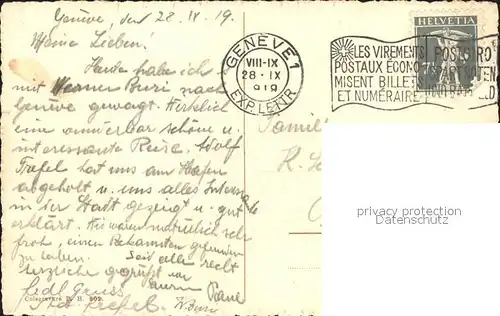 Genève, den 28. IX. 19.
Meine Lieben!
Heute habe ich
mit Werner Buri nach
Genève gewagt. Wirklich
eine wunderbar schöne u.
interessante Reise. Adolf
Trafel hat uns am Hafen
abgeholt u. uns alles Interessante
in der Stadt gezeigt u. gut
erklärt. Wir waren natürlich sehr
froh, einen Bekannten gefunden
zu haben. Seid alle recht
herzliche gegrüsst von
eurem
Frdl Gruss
W. Buri
GENÈVE 1
VIII-IX
28·IX
919
EXP. LETTR.
LES VIREMENTS
POSTAUX ÉCONO
MISENT BILLETS
ET NUMÉRAIRE
POSTGIRO
SPART NOTEN
UND BARGELD
HELVETIA
7½
Familie
privacy protection
watermark